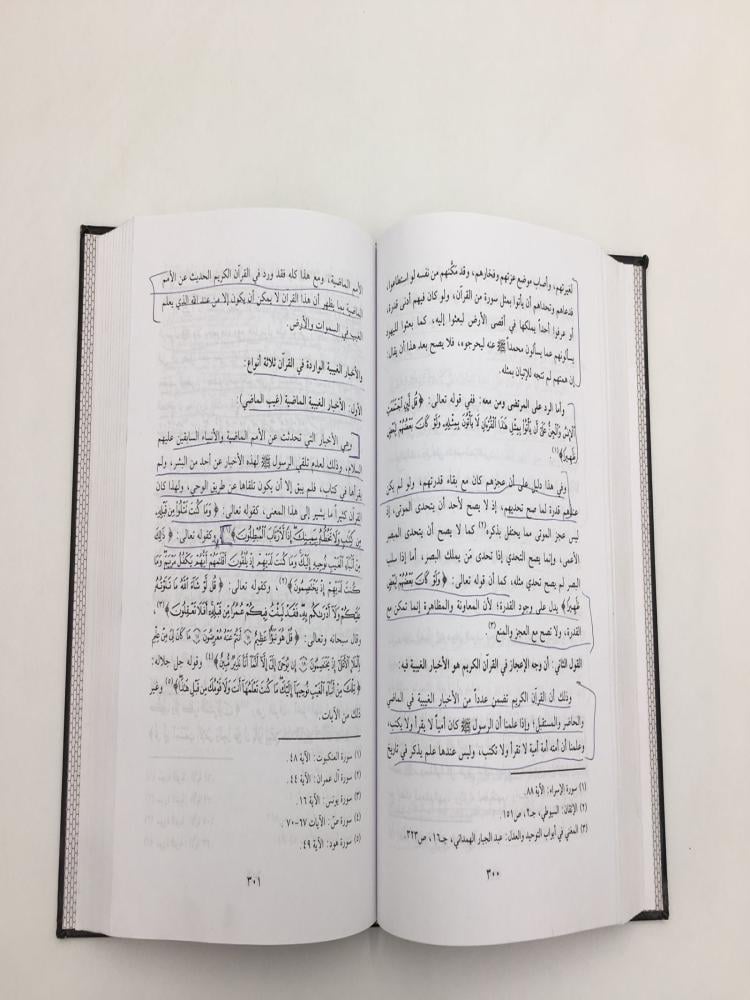 لغيرتهم، وأصاب موضع عزتهم وفخارهم، وقد مكَّنهم من نفسه لو استطاعوا،
فدعاهم وتحداهم أن يأتوا بمثل سورة من القرآن، ولو كان فيهم أدنى قدرة،
أو عرفوا أحداً يملكها في أقصى الأرض لبعثوا إليه، كما بعثوا لليهود
يسألونهم عما يسألون محمداً ﷺ عنه ليحرجوه، فلا يصح بعد هذا أن يقال:
إن همتهم لم تتجه للإتيان بمثله.
وأما الرد على المرتضى ومن معه: ففي قوله تعالى: ﴿قُل لَّئِنِ ٱجْتَمَعَتِ
ٱلْإِنسُ وَٱلْجِنُّ عَلَىٰٓ أَن يَأْتُوا۟ بِمِثْلِ هَٰذَا ٱلْقُرْءَانِ لَا يَأْتُونَ بِمِثْلِهِۦ وَلَوْ كَانَ بَعْضُهُمْ لِبَعْضٍ
ظَهِيرًا﴾(١).
وفي هذا دليل على أن عجزهم كان مع بقاء قدرتهم، ولو لم يكن
عندهم قدرة لما صح تحديهم، إذ لا يصح لأحد أن يتحدى الموتى، إذ
ليس عجز الموتى مما يحتفل بذكره(٢) كما لا يصح أن يتحدى
الأعمى، وإنما يصح التحدي إذا تحدى مَن يملك البصر، أما إذا سلب
البصر لم يصح تحدي مثله، كما أن قوله تعالى: ﴿وَلَوْ كَانَ بَعْضُهُمْ لِبَعْضٍ
ظَهِيرًا﴾ يدل على وجود القدرة؛ لأن المعاونة والمظاهرة إنما تمكن مع
القدرة، ولا تصح مع العجز والمنع(٣).
القول الثاني: أن وجه الإعجاز في القرآن الكريم هو الأخبار الغيبية فيه:
وذلك أن القرآن الكريم تضمن عدداً من الأخبار الغيبية في الماضي
والحاضر والمستقبل؛ وإذا علمنا أن الرسول ﷺ كان أمياً لا يقرأ ولا يكتب،
وعلمنا أن أمته أمة أمية لا تقرأ ولا تكتب، وليس عندها علم يذكر في تاريخ
(١) سورة الإسراء: الآية ٨٨.
(٢) الإتقان: السيوطي، جـ٢، ص١٥١.
(٣) المغني في أبواب التوحيد والعدل: عبد الجبار الهمداني، جـ١٦، ص٣٢٣.
٣٠٠
الأمم الماضية، ومع هذا كله فقد ورد في القرآن الكريم الحديث عن الأمم
الماضية بما يظهر أن هذا القرآن لا يمكن أن يكون إلا من عند الله الذي يعلم
الغيب في السموات والأرض.
والأخبار الغيبية الواردة في القرآن ثلاثة أنواع:
الأول: الأخبار الغيبية الماضية (غيب الماضي):
وهي الأخبار التي تحدثت عن الأمم الماضية والأنبياء السابقين عليهم
السلام، وذلك لعدم تلقي الرسول ﷺ لهذه الأخبار عن أحد من البشر، ولم
يقرأها في كتاب، فلم يبق إلا أن يكون تلقاها عن طريق الوحي، ولهذا كان
القرآن كثيراً ما يشير إلى هذا المعنى، كقوله تعالى: ﴿وَمَا كُنتَ تَتْلُوا۟ مِن قَبْلِهِۦ
مِن كِتَٰبٍ وَلَا تَخُطُّهُۥ بِيَمِينِكَ إِذًا لَّٱرْتَابَ ٱلْمُبْطِلُونَ﴾(١)، وكقوله تعالى: ﴿ذَٰلِكَ
مِنْ أَنۢبَآءِ ٱلْغَيْبِ نُوحِيهِ إِلَيْكَ وَمَا كُنتَ لَدَيْهِمْ إِذْ يُلْقُونَ أَقْلَٰمَهُمْ أَيُّهُمْ يَكْفُلُ مَرْيَمَ وَمَا
كُنتَ لَدَيْهِمْ إِذْ يَخْتَصِمُونَ﴾(٢)، وكقوله تعالى: ﴿قُل لَّوْ شَآءَ ٱللَّهُ مَا تَلَوْتُهُۥ
عَلَيْكُمْ وَلَآ أَدْرَىٰكُم بِهِۦ فَقَدْ لَبِثْتُ فِيكُمْ عُمُرًا مِّن قَبْلِهِۦٓ أَفَلَا تَعْقِلُونَ﴾(٣)،
وقال سبحانه وتعالى: ﴿قُلْ هُوَ نَبَؤٌا۟ عَظِيمٌ ۝ أَنتُمْ عَنْهُ مُعْرِضُونَ ۝ مَا كَانَ لِىَ مِنْ عِلْمٍۭ
بِٱلْمَلَإِ ٱلْأَعْلَىٰٓ إِذْ يَخْتَصِمُونَ ۝ إِن يُوحَىٰٓ إِلَىَّ إِلَّآ أَنَّمَآ أَنَا۠ نَذِيرٌ مُّبِينٌ﴾(٤) وقوله جل جلاله:
﴿تِلْكَ مِنْ أَنۢبَآءِ ٱلْغَيْبِ نُوحِيهَآ إِلَيْكَ مَا كُنتَ تَعْلَمُهَآ أَنتَ وَلَا قَوْمُكَ مِن قَبْلِ هَٰذَا﴾(٥) وغير
ذلك من الآيات.
(١) سورة العنكبوت: الآية ٤٨.
(٢) سورة آل عمران: الآية ٤٤.
(٣) سورة يونس: الآية ١٦.
(٤) سورة صّ: الآيات ٦٧-٧٠.
(٥) سورة هود: الآية ٤٩.
٣٠١